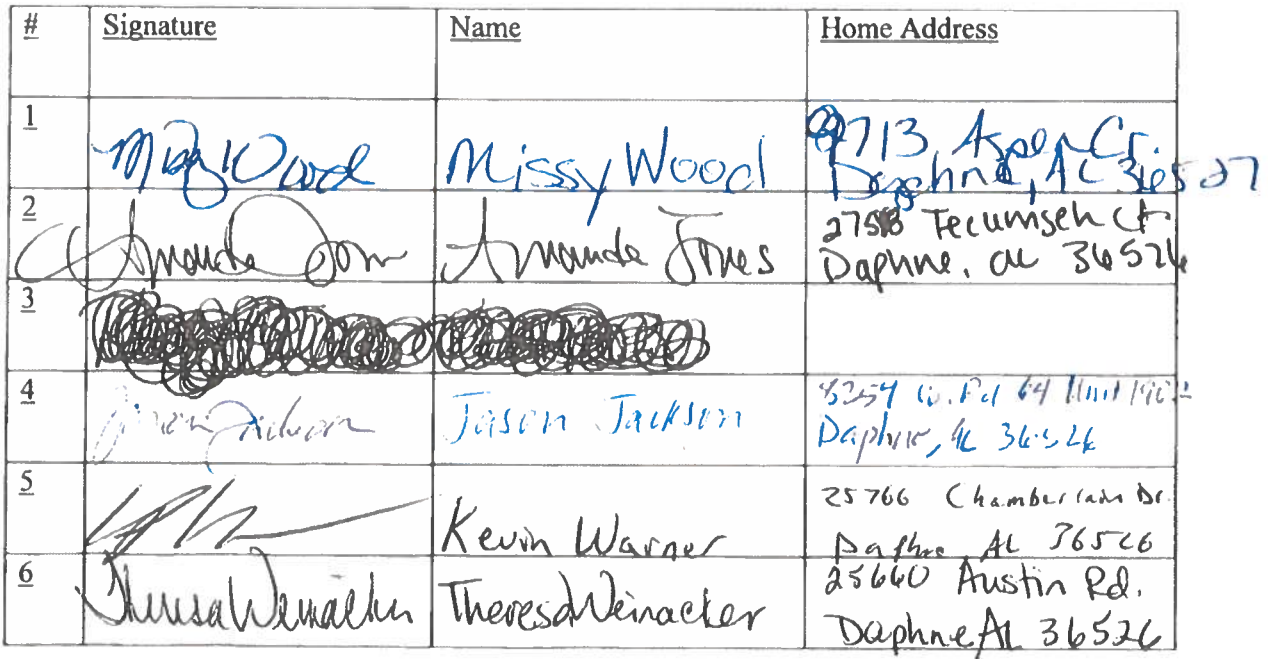 # Signature Name Home Address
1 Missy Wood Missy Wood 9713 Aspen Cr.
Daphne, AL 36527
2 Amanda Jones Amanda Jones Tecumseh Ct
Daphne, AL 36526
3
4 Jason Jackson Jason Jackson 8254 Co. Rd 64 Unit
Daphne, AL 36526
5 Kevin Warner 25766 Chamberlain Dr.
Daphne, AL 36526
6 Theresa Weinacker Theresa Weinacker 25660 Austin Rd.
Daphne AL 36526